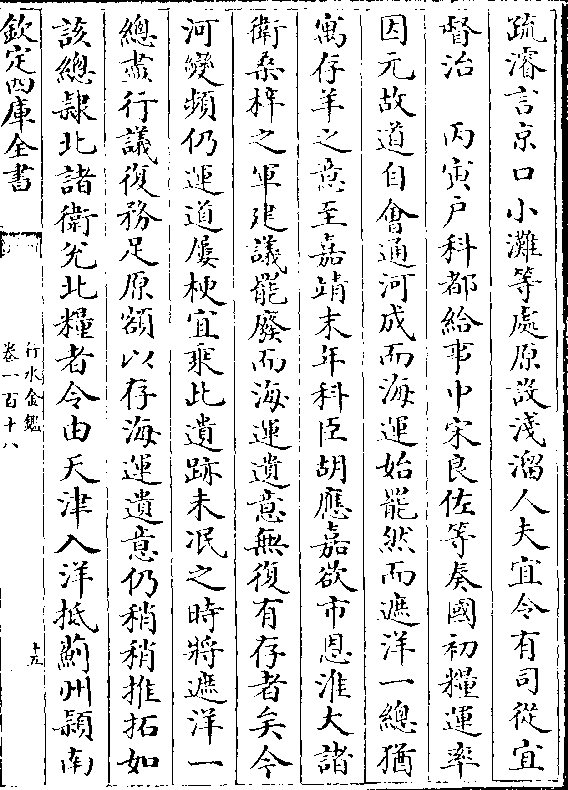 疏濬言京口小灘等處原設淺溜人夫宜令有司從宜
督治　丙寅戶科都給事中宋良佐等奏國初糧運率
因元故道自會通河成而海運始罷然而遮洋一總猶
寓存羊之意至嘉靖末年科臣胡應嘉欲市恩淮大諸
衛桑梓之軍建議罷廢而海運遺意無復有存者矣今
河變頻仍運道屢梗宜乘此遺跡未泯之時將遮洋一
總盡行議復務足原額以存海運遺意仍稍稍推拓如
該總隷北諸衛兊北糧者令由天津入洋抵薊州潁南
欽定四庫全書
行水金鑑
卷一百十八
十五